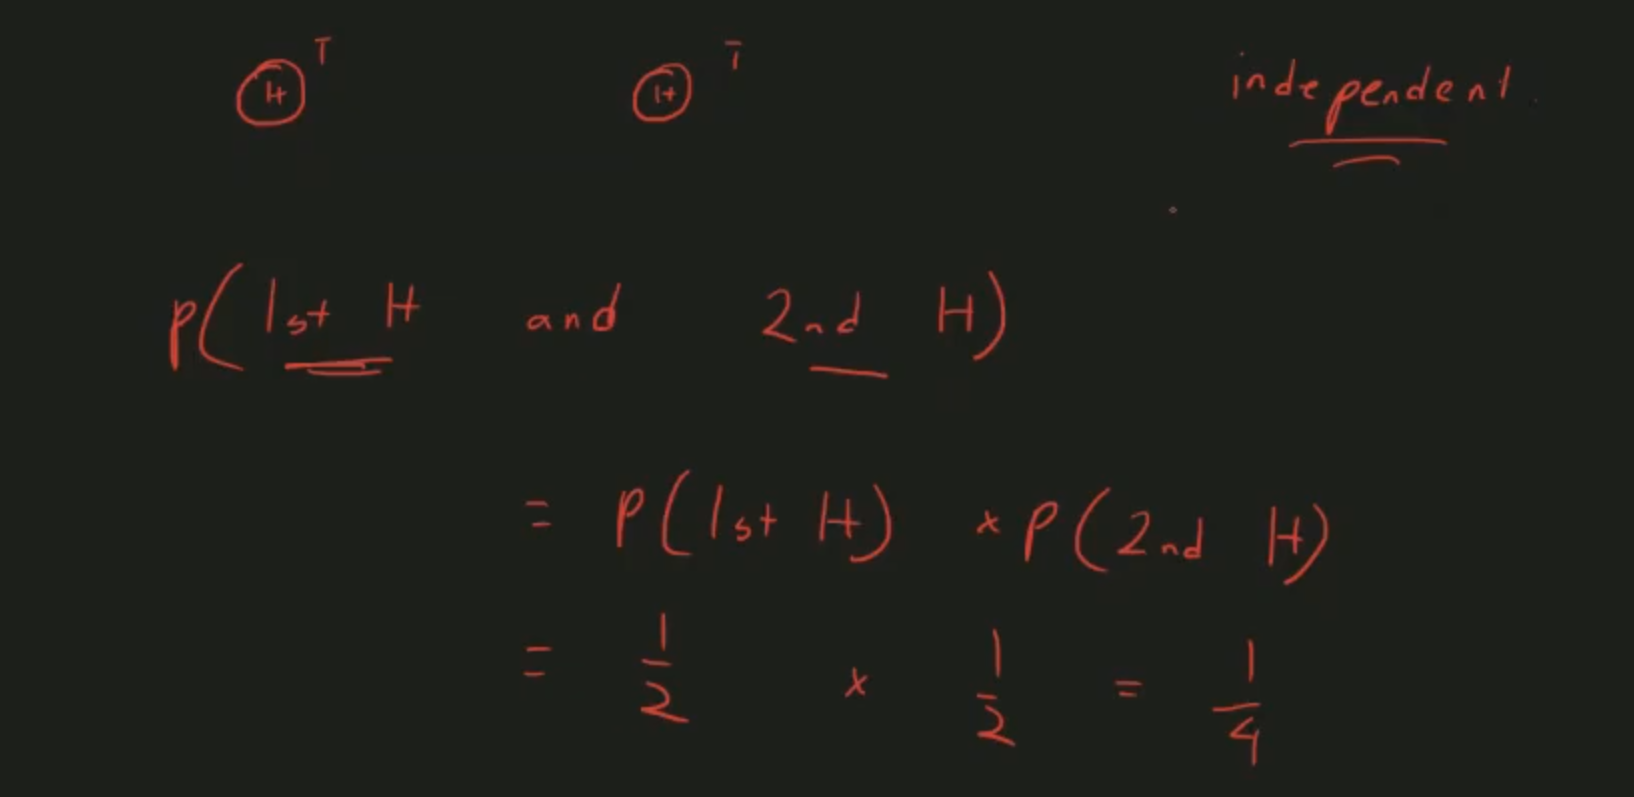 H T H T independent
P(1st H and 2nd H)
= P(1st H) × P(2nd H)
= 1/2 × 1/2 = 1/4